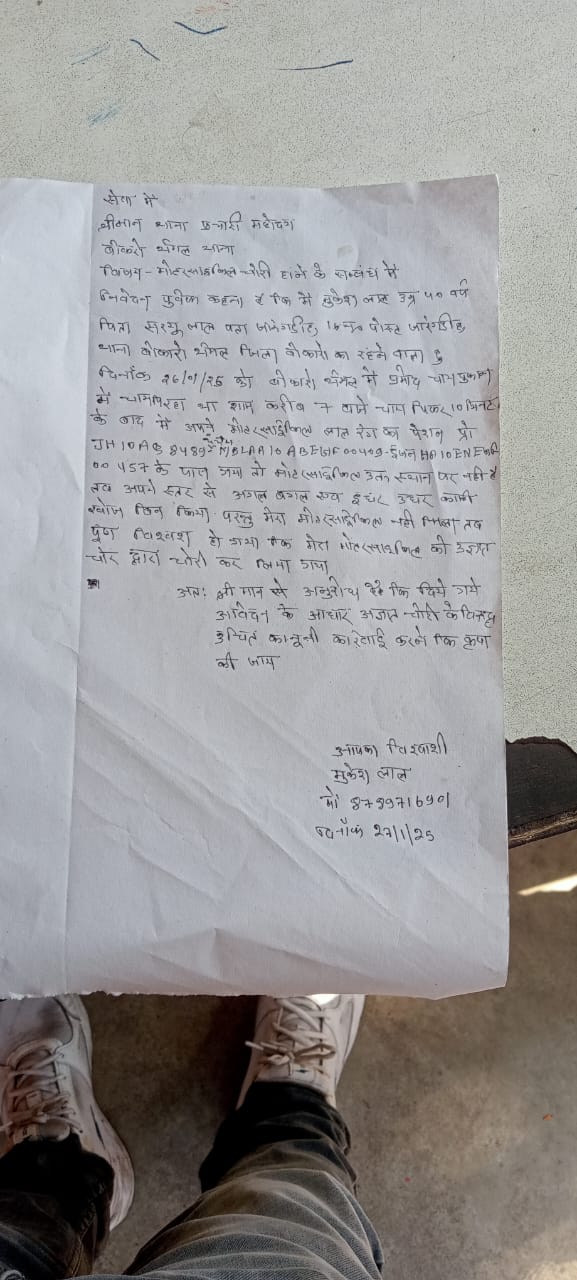 सेवा में
श्रीमान थाना प्रभारी महोदय
बोकारो थर्मल थाना
विषय - मोटरसाइकिल चोरी होने के सम्बंध में
निवेदन पुर्वक कहना है कि मैं मुकेश लाल उम्र 40 वर्ष
पिता सरयू लाल पता जारंगडीह, 16 नं० पोस्ट जारंगडीह,
थाना बोकारो थर्मल जिला बोकारो का रहने वाला हु
दिनाँक 26/01/25 को बोकारो थर्मल में प्रमोद चाय दुकान
में चाय पी रहा था शाम करीब 7 बजे चाय पिकर 10 मिनट
के बाद में अपने मोटरसाईकिल लाल रंग का पेशन प्रो
JH10AQ 8489 इंजन
00457 के पास गया तो मोटरसाइकिल उक्त स्थान पर नही है
तब अपने स्तर से अगल बगल एवं इधर उधर काफी
खोज बिन किया परन्तु मेरा मोटरसाइकिल नही मिला तब
पुर्ण विश्वाश हो गया कि मेरा मोटरसाइकिल को अज्ञात
चोर द्वारा चोरी कर लिया गया
अतः श्री मान से अनुरोध है कि दिये गये
आवेदन के आधार अज्ञात चोरो के विरूद्ध
उचित कानूनी कारवाई करने कि कृपा
की जाय
आपका विश्वाशी
मुकेश लाल
मो 8789716901
दिनाँक 27/1/25